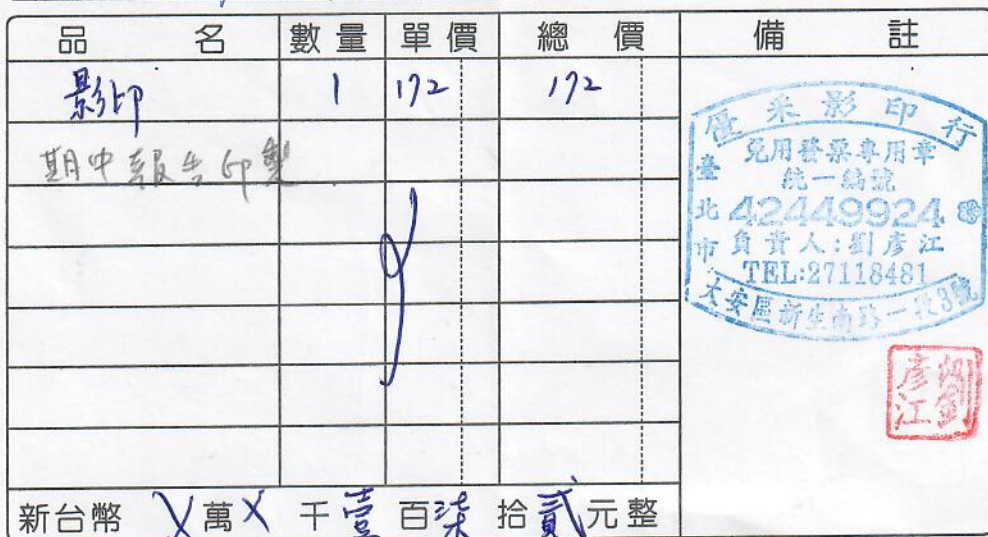 品名 數量 單價 總價 備註
影印 1 172 172
期中報告印製
優采影印行
免用發票專用章
統一編號
臺北市
42449924
負責人:劉彥江
TEL:27118481
大安區新生南路一段3號
劉彥江
新台幣 X萬X千壹百柒拾貳元整